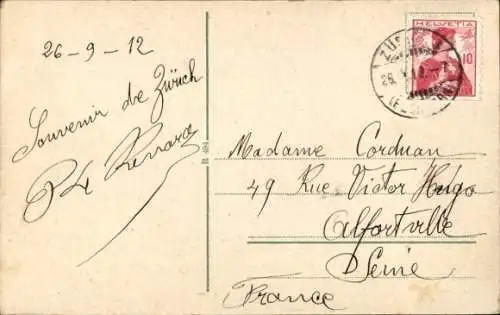 26-9-12
Souvenir de Zürich
HELVETIA
10
Madame Corduan
49 Rue Victor Hugo
Alfortville
Seine
France